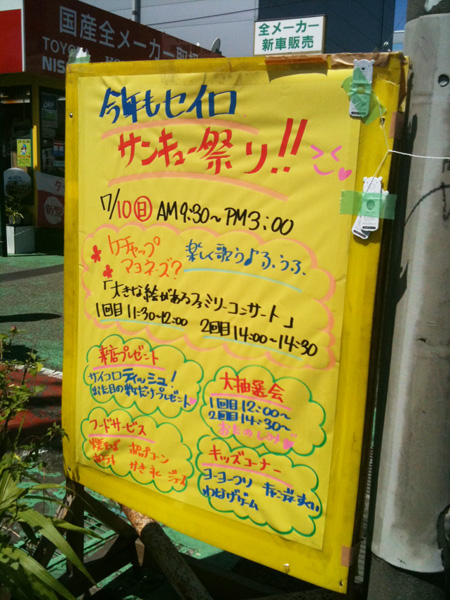 国産全メーカー取扱
TOYO
NIS
全メーカー
新車販売
今年もセイロ
サンキュー祭り!!
7/10(日) AM9:30~PM3:00
ケチャップ
マヨネーズ?
楽しく歌う♪ふぅふ
「大きな絵があるファミリーコンサート」
1回目 11:30~12:00 2回目 14:00~14:30
来店プレゼント
サイコロティッシュ!
出た目の数だけプレゼント
大抽選会
1回目 12:00~
2回目 14:30~
おたのしみ
フードサービス
焼そば ポップコーン
かき氷
キッズコーナー
ヨーヨーつり
わなげゲーム